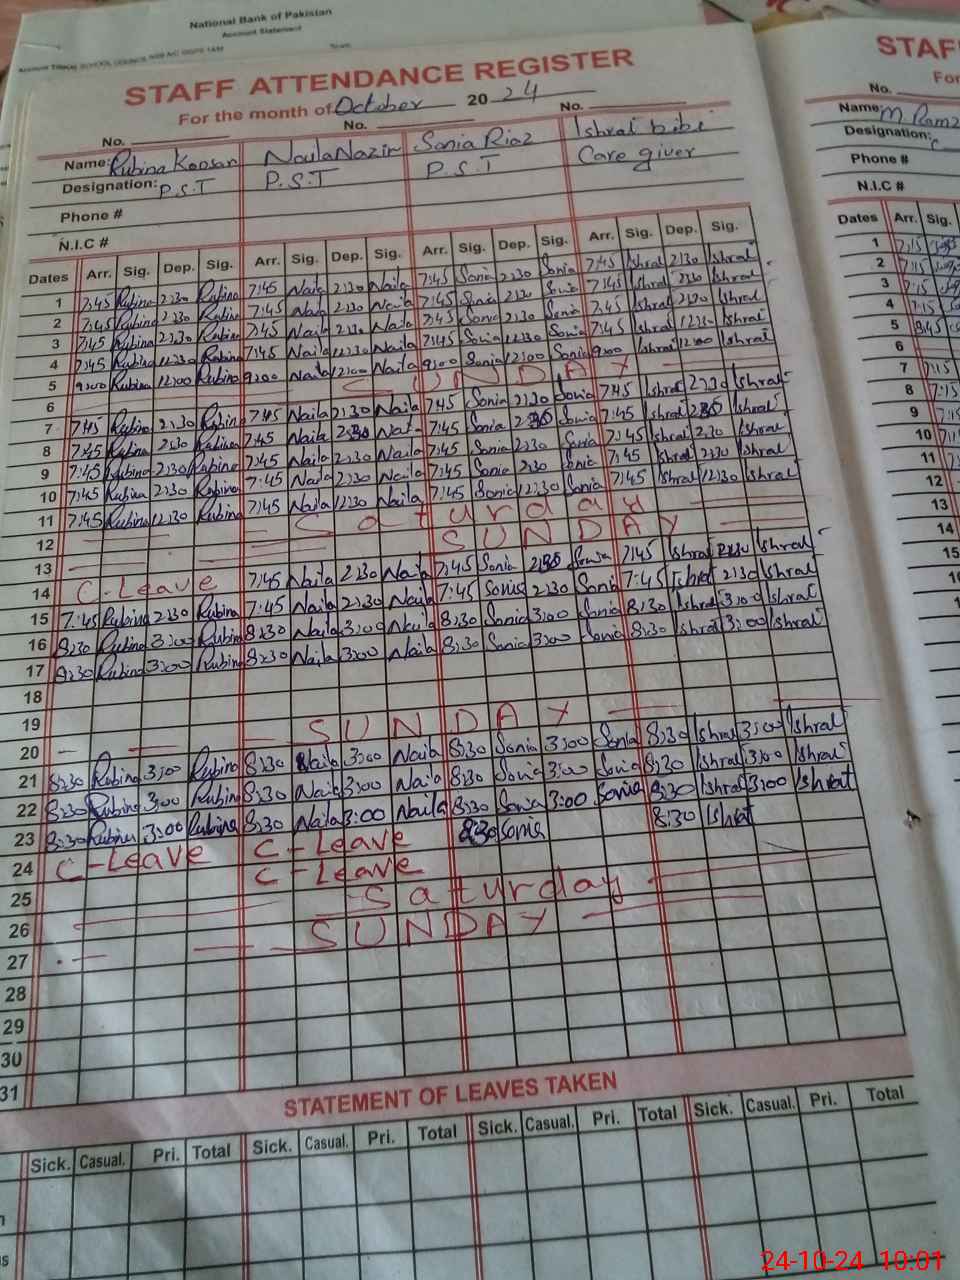 National Bank of Pakistan
Account Statement
STAFF ATTENDANCE REGISTER
For the month of October 2024
No. No. No.
Name: Rubina Kousar Naila Nazir Sonia Riaz Ishrat bibi
Designation: P.S.T P.S.T P.S.T Care giver
Phone #
N.I.C #
Dates Arr. Sig. Dep. Sig. Arr. Sig. Dep. Sig. Arr. Sig. Dep. Sig. Arr. Sig. Dep. Sig.
1 7:45 Rubina 2:30 Rubina 7:45 Naila 2:30 Naila 7:45 Sonia 2:30 Sonia 7:45 Ishrat 2:30 Ishrat
2 7:45 Rubina 2:30 Rubina 7:45 Naila 2:30 Naila 7:45 Sonia 2:30 Sonia 7:45 Ishrat 2:30 Ishrat
3 7:45 Rubina 2:30 Rubina 7:45 Naila 2:30 Naila 7:45 Sonia 2:30 Sonia 7:45 Ishrat 2:30 Ishrat
4 7:45 Rubina 12:30 Rubina 7:45 Naila 12:30 Naila 7:45 Sonia 12:30 Sonia 7:45 Ishrat 12:30 Ishrat
5 9:00 Rubina 12:00 Rubina 9:00 Naila 12:00 Naila 9:00 Sonia 12:00 Sonia 9:00 Ishrat 12:00 Ishrat
6 SUNDAY
7 7:45 Rubina 2:30 Rubina 7:45 Naila 2:30 Naila 7:45 Sonia 2:30 Sonia 7:45 Ishrat 2:30 Ishrat
8 7:45 Rubina 2:30 Rubina 7:45 Naila 2:30 Naila 7:45 Sonia 2:30 Sonia 7:45 Ishrat 2:30 Ishrat
9 7:45 Rubina 2:30 Rubina 7:45 Naila 2:30 Naila 7:45 Sonia 2:30 Sonia 7:45 Ishrat 2:30 Ishrat
10 7:45 Rubina 2:30 Rubina 7:45 Naila 2:30 Naila 7:45 Sonia 2:30 Sonia 7:45 Ishrat 2:30 Ishrat
11 7:45 Rubina 12:30 Rubina 7:45 Naila 12:30 Naila 7:45 Sonia 12:30 Sonia 7:45 Ishrat 12:30 Ishrat
12 Saturday
13 SUNDAY
14 C-Leave 7:45 Naila 2:30 Naila 7:45 Sonia 2:30 Sonia 7:45 Ishrat 2:30 Ishrat
15 7:45 Rubina 2:30 Rubina 7:45 Naila 2:30 Naila 7:45 Sonia 2:30 Sonia 7:45 Ishrat 2:30 Ishrat
16 8:30 Rubina 3:00 Rubina 8:30 Naila 3:00 Naila 8:30 Sonia 3:00 Sonia 8:30 Ishrat 3:00 Ishrat
17 8:30 Rubina 3:00 Rubina 8:30 Naila 3:00 Naila 8:30 Sonia 3:00 Sonia 8:30 Ishrat 3:00 Ishrat
18
19
20 SUNDAY
21 8:30 Rubina 3:00 Rubina 8:30 Naila 3:00 Naila 8:30 Sonia 3:00 Sonia 8:30 Ishrat 3:00 Ishrat
22 8:30 Rubina 3:00 Rubina 8:30 Naila 3:00 Naila 8:30 Sonia 3:00 Sonia 8:30 Ishrat 3:00 Ishrat
23 8:30 Rubina 3:00 Rubina 8:30 Naila 3:00 Naila 8:30 Sonia 3:00 Sonia 8:30 Ishrat 3:00 Ishrat
24 C-Leave C-Leave 8:30 Sonia 8:30 Ishrat
25 C-Leave
26 Saturday
27 SUNDAY
28
29
30
31
STATEMENT OF LEAVES TAKEN
Sick. Casual. Pri. Total Sick. Casual. Pri. Total Sick. Casual. Pri. Total Sick. Casual. Pri. Total
STAF
For
No.
Name: M Ramz
Designation:
Phone #
N.I.C #
Dates Arr. Sig.
1 7:15
2 7:15
3 7:15
4 7:15
5 8:45
6
7 7:15
8 7:15
9 7:15
10
11
12
13
14
15
24-10-24 10:01